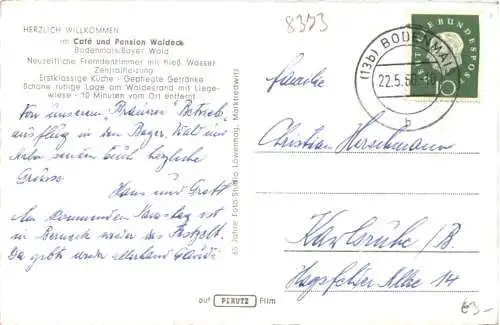 HERZLICH WILLKOMMEN
im Café und Pension Waldeck
Bodenmais-Bayer. Wald
Neuzeitliche Fremdenzimmer mit fließ. Wasser
Zentralheizung
Erstklassige Küche - Gepflegte Getränke
Schöne ruhige Lage am Waldesrand mit Liege-
wiese - 10 Minuten vom Ort entfernt
Von unserem "Brauerei" Betriebs-
ausflug in den Bayer. Wald und
senden Euch herzliche
Grüsse
Hans und Gretl
Am kommenden Samstag ist
in Berneck wieder das Festzelt.
Da gibts wieder allerhand Gaudi
65 Jahre Foto Studio Löwenhag, Marktredwitz
auf PERUTZ Film
8373
(13b) BODENMAIS
22.5.60
b
DEUTSCHE BUNDESPOST
10
Familie
Christian Herschmann
Karlsruhe/B.
Hagsfelder Allee 14
€3.-